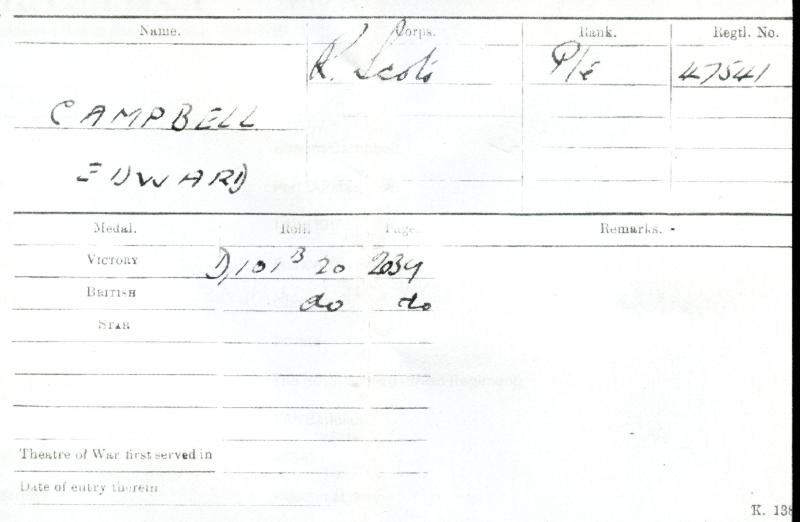 Name. Corps. Rank. Regtl. No.
R. Scots Pte 47541
CAMPBELL
EDWARD
Medal. Roll. Page. Remarks.
VICTORY D/101 B 20 2034
BRITISH do do
STAR
Theatre of War first served in
Date of entry therein
K. 138